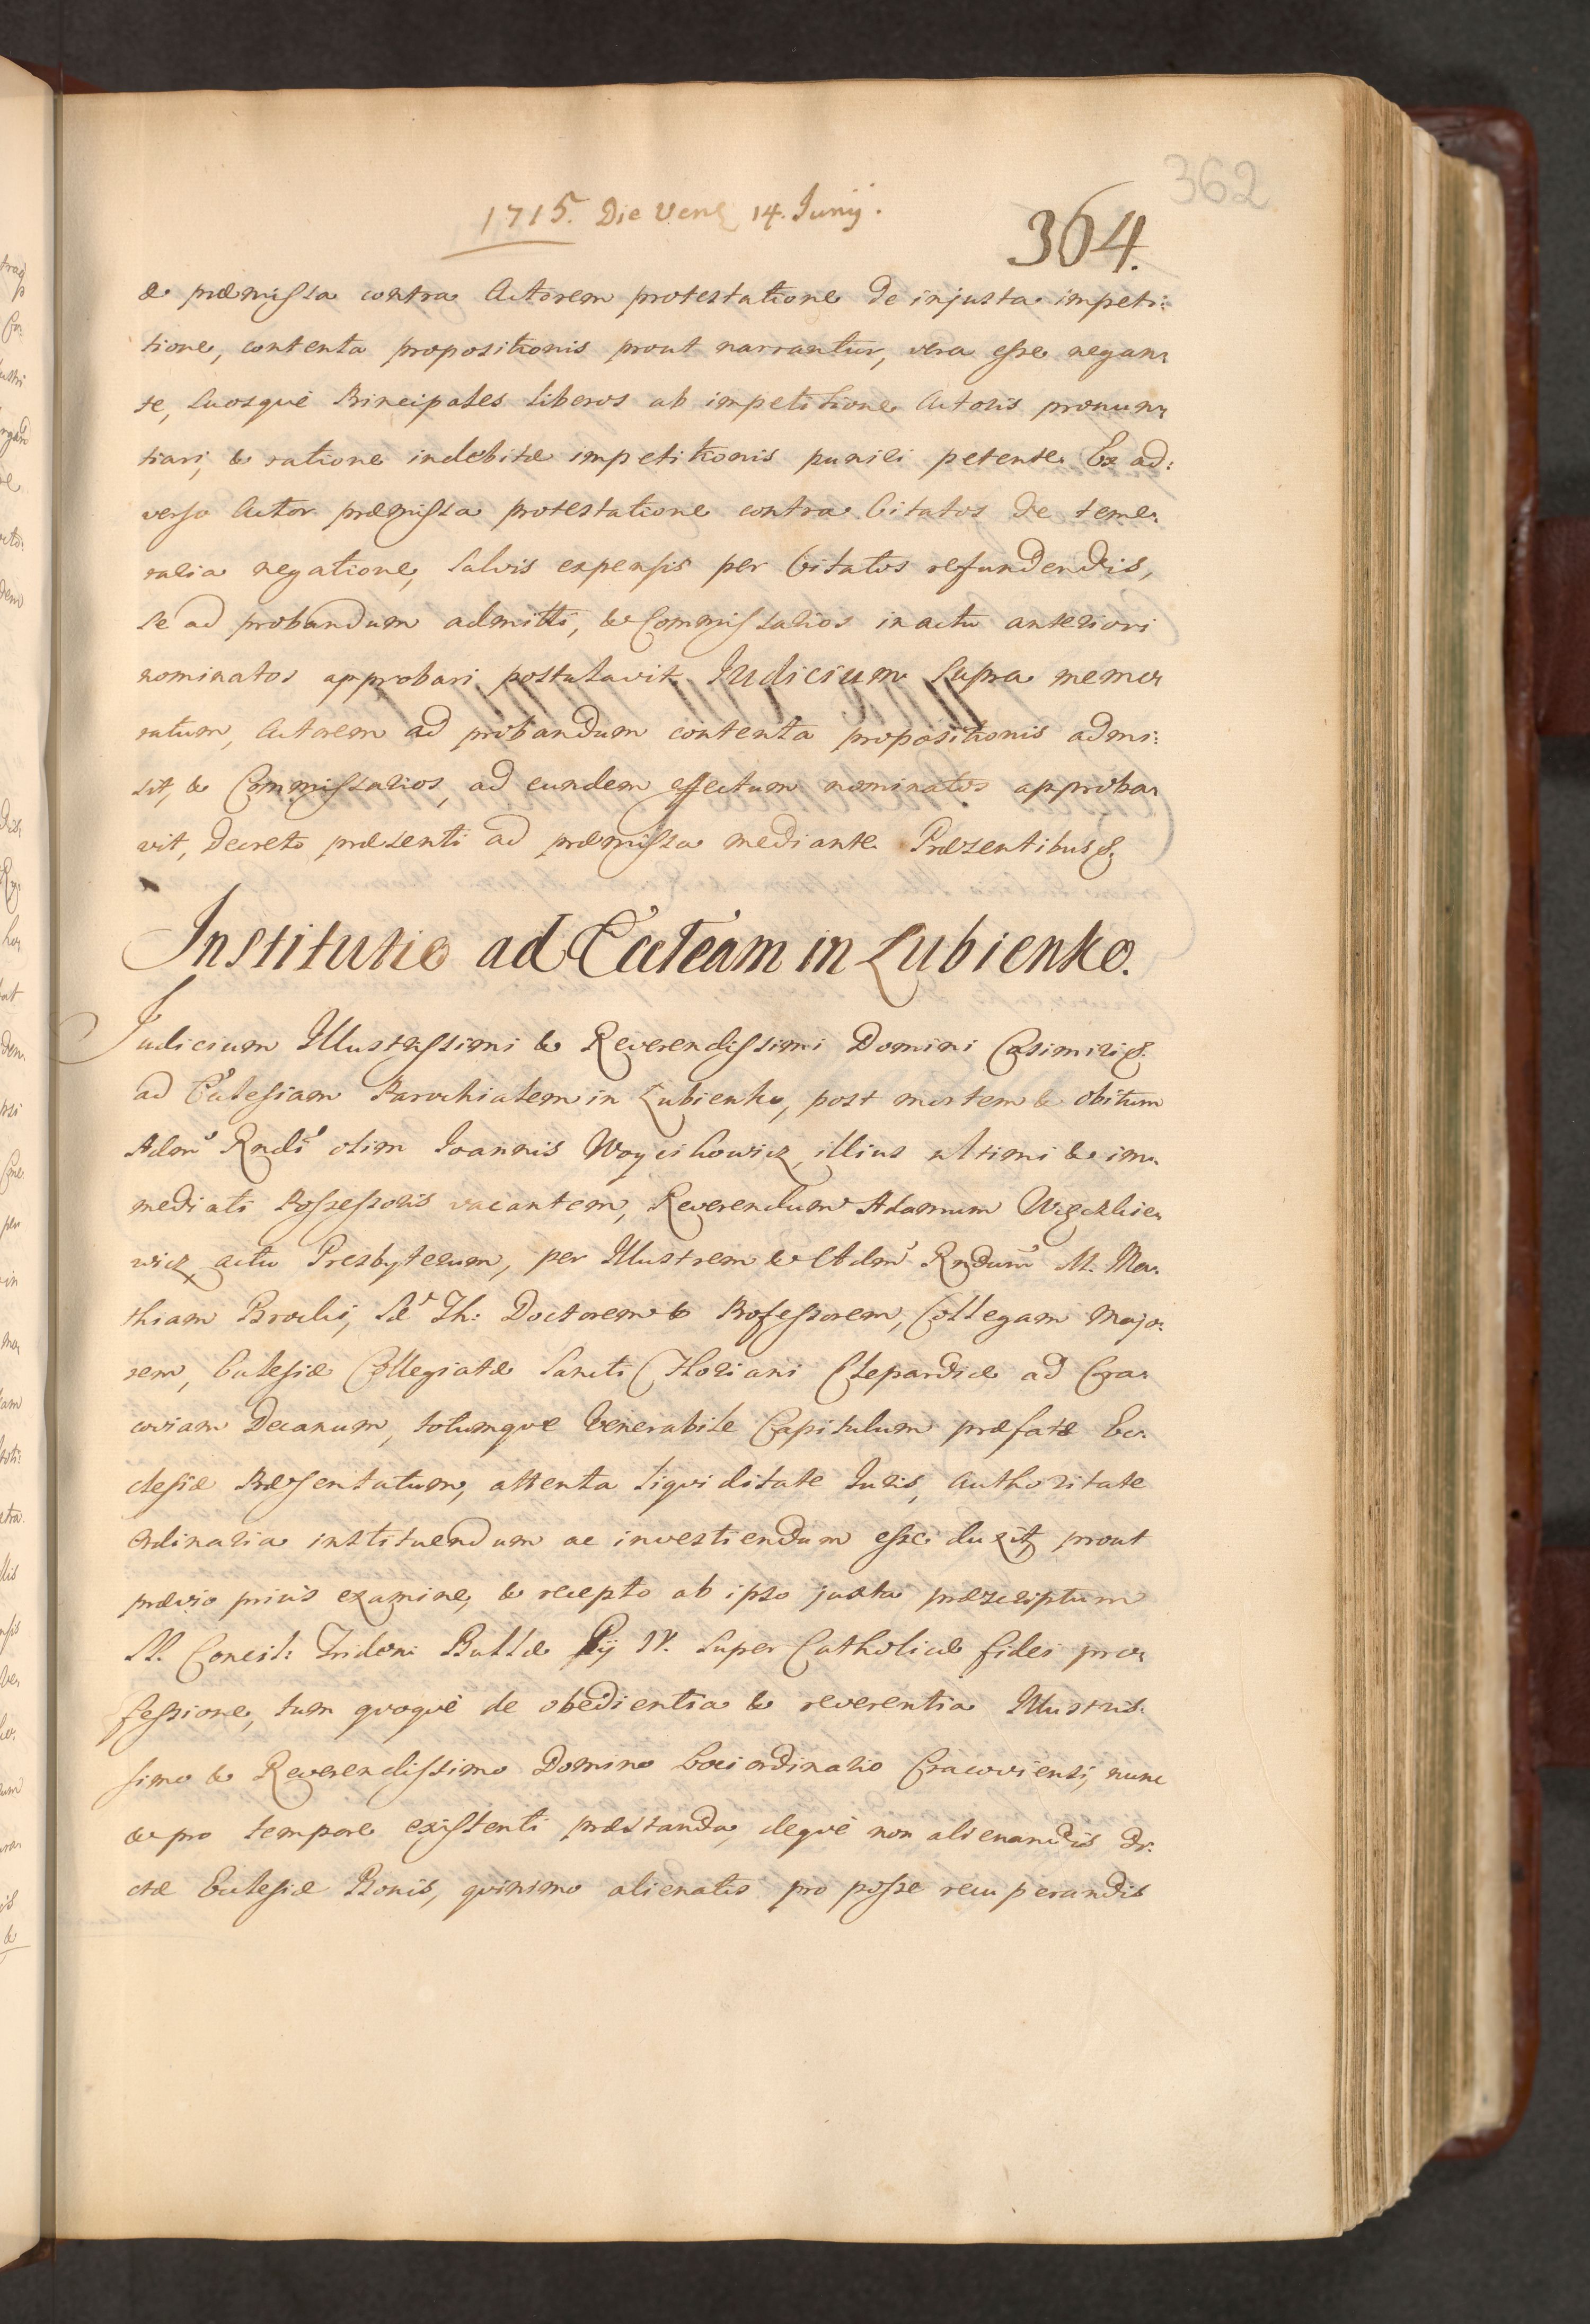 362
1715. Die Ven 14. Junij.
364.
& præmissa contra Actorem protestatione de injusta impeti:
tione, contenta propositionis prout narrantur, vera esse negan-
te, Suosquè Principales liberos ab impetitione Actoris pronun-
tiari, & ratione indebitæ impetitionis puniri petente. Ex ad:
verso Actor præmissa protestatione contra Citatos de teme-
raria negatione, salvis expensis per Citatos refundendis,
se ad probandum admitti, & Commissarios in actu anteriori
nominatos approbari postulavit. Judicium supra memo-
ratum, Actorem ad probandum contenta propositionis admi:
sit, & Commissarios, ad eundem effectum nominatos approba-
vit, Decreto præsenti ad præmissa mediante. Præsentibus &.
Institutio ad Eccleam in Łubienko.
Judicium Illustrissimi & Reverendissimi Domini Casimiri &.
ad Ecclesiam Parochialem in Łubienko, post mortem & obitum
Adm Rndi olim Joannis Woycikowicz, illius ultimi & im-
mediati Possessoris vacantem, Reverendum Adamum
wicz, actu Presbyterum, per Illustrem & Adm Rndum M. Ma-
thiam Brocki, Th: Doctorem & Professorem, Collegam Majo-
rem, Ecclesiæ Collegiatæ Sancti Floriani Clepardiæ ad Cra-
coviam Decanum, totumque Venerabile Capitulum præfatæ Ec-
clesiæ Præsentatum, attenta liquiditate Juris, Authoritate
Ordinaria instituendum ac investiendum esse duxit, prout
prævio prius examine, & recepto ab ipso juxta præscriptum
Concil: Triden: Bullæ Pij IV. super Catholicæ fidei pro-
fessione, tum quoquè de obedientia & reverentia Illustris-
simo & Reverendissimo Domino Loci Ordinario Cracoviensi, nunc
& pro tempore existenti præstanda, dequè non alienandis di-
ctæ Ecclesiæ Bonis, quinimo alienatis pro posse recuperandis